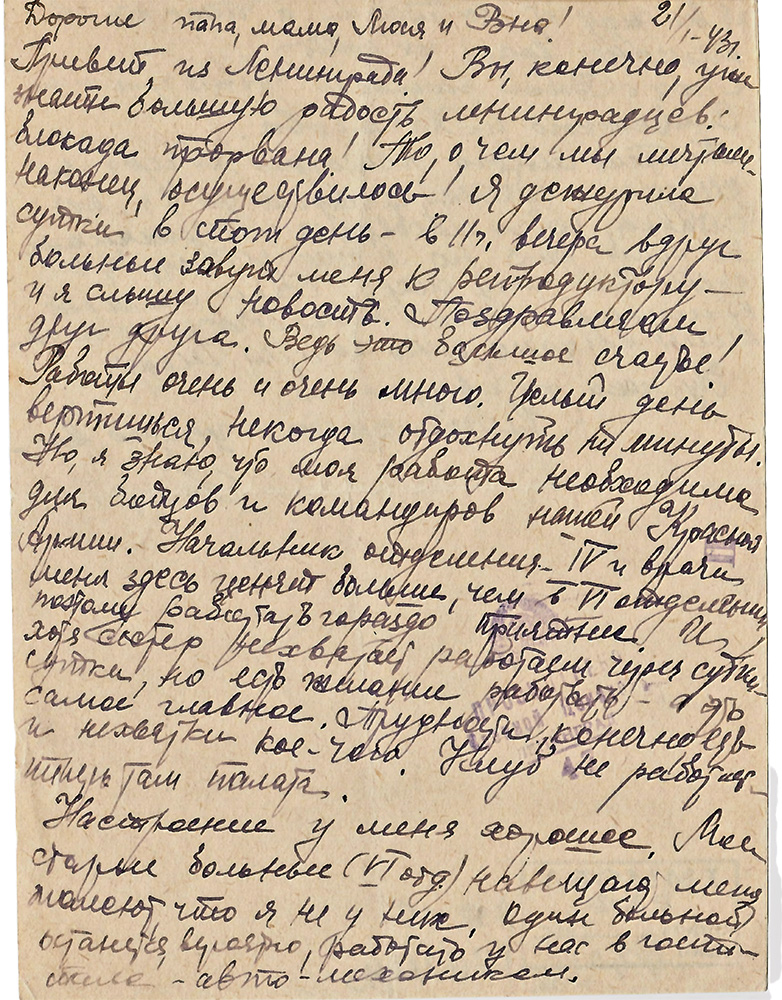 Дорогие папа, мама, Люся и Вна! 21/I-43г.
Привет из Ленинграда! Вы, конечно, уже
знаете большую радость ленинградцев:
блокада прорвана! То, о чем мы мечтали-
наконец, осуществилось! Я дежурила
сутки в этот день - в 11ч. вечера вдруг
больные зовут меня к репродуктору -
и я слышу новость. Поздравляем
друг друга. Ведь это большое счастье!
Работы очень и очень много. Целый день
вертишься, некогда отдохнуть ни минуты.
Но, я знаю, что моя работа необходима
для бойцов и командиров нашей Красной
Армии. Начальник отделения - IV и врачи
меня здесь ценят больше, чем в VI отделении,
поэтому работать гораздо приятнее. И,
хотя сестер нехватает работаем через сутки-
сутки, но есть желание работать - а это
самое главное. Трудности, конечно есть
и нехватки кое-чего. Клуб не работает-
теперь там палата.
Настроение у меня хорошее. Мои
старые больные (VI отд.) навещают меня
жалеют, что я не у них. Один больной
останется, вероятно, работать у нас в госпи-
тале - авто-механиком.